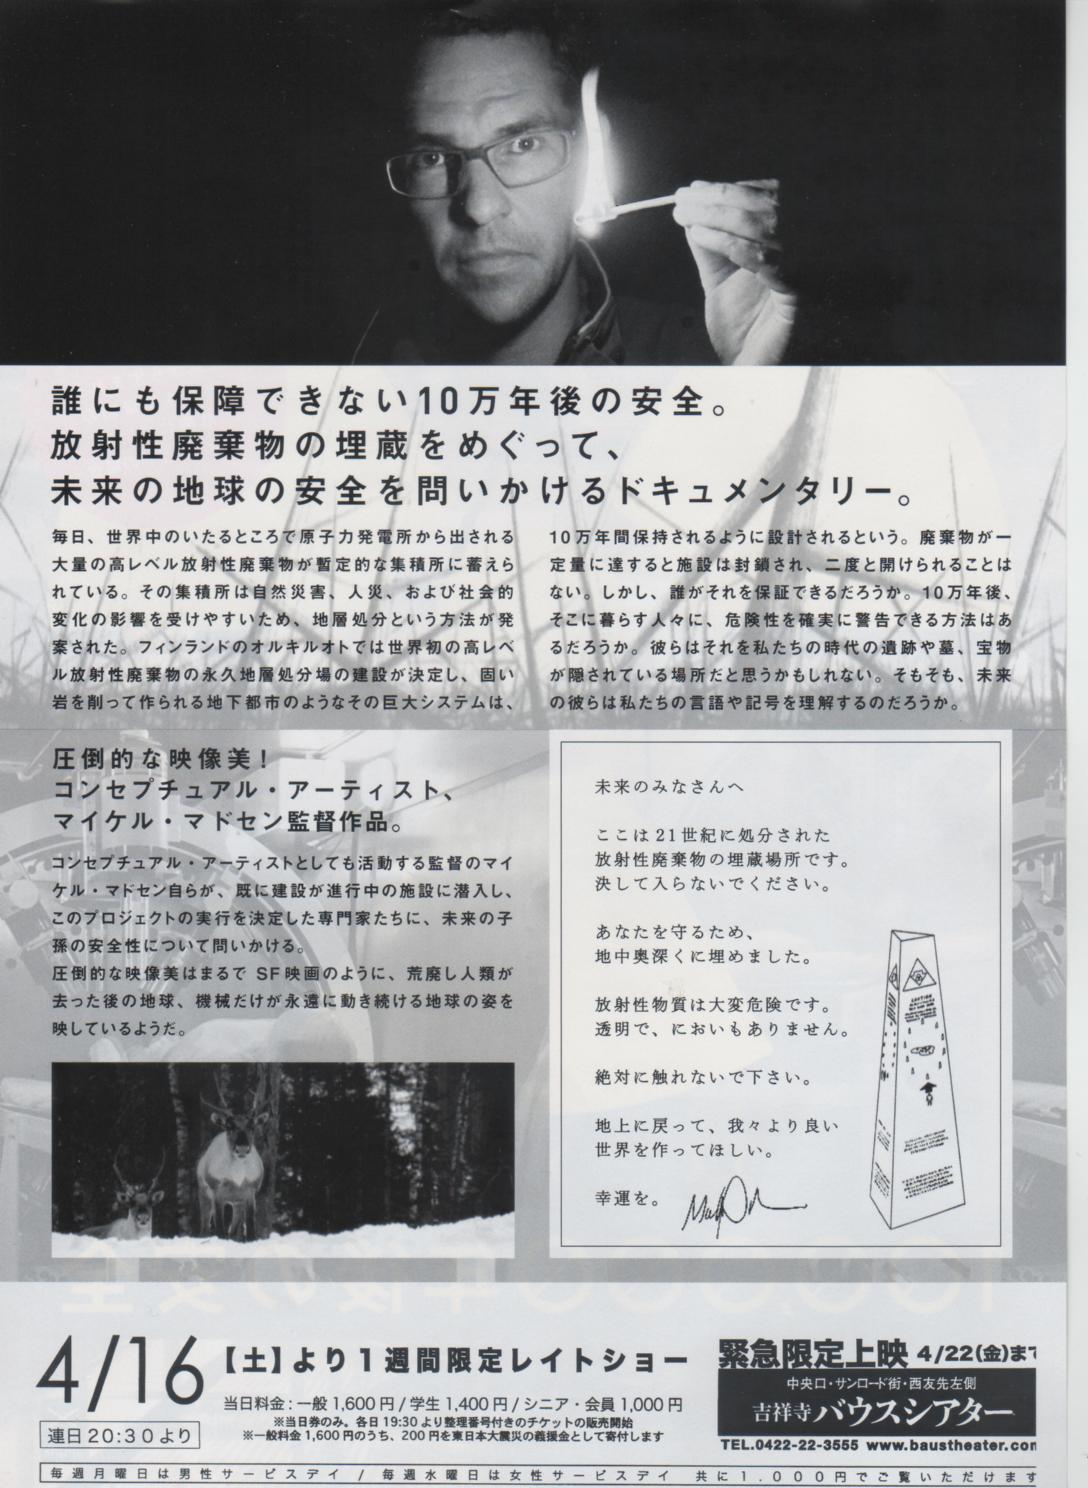 誰にも保障できない10万年後の安全。
放射性廃棄物の埋蔵をめぐって、
未来の地球の安全を問いかけるドキュメンタリー。
毎日、世界中のいたるところで原子力発電所から出される
大量の高レベル放射性廃棄物が暫定的な集積所に蓄えら
れている。その集積所は自然災害、人災、および社会的
変化の影響を受けやすいため、地層処分という方法が発
案された。フィンランドのオルキルオトでは世界初の高レベ
ル放射性廃棄物の永久地層処分場の建設が決定し、固い
岩を削って作られる地下都市のようなその巨大システムは、
10万年間保持されるように設計されるという。廃棄物が一
定量に達すると施設は封鎖され、二度と開けられることは
ない。しかし、誰がそれを保証できるだろうか。10万年後、
そこに暮らす人々に、危険性を確実に警告できる方法はあ
るだろうか。彼らはそれを私たちの時代の遺跡や墓、宝物
が隠されている場所だと思うかもしれない。そもそも、未来
の彼らは私たちの言語や記号を理解するのだろうか。
圧倒的な映像美！
コンセプチュアル・アーティスト、
マイケル・マドセン監督作品。
コンセプチュアル・アーティストとしても活動する監督のマイ
ケル・マドセン自らが、既に建設が進行中の施設に潜入し、
このプロジェクトの実行を決定した専門家たちに、未来の子
孫の安全性について問いかける。
圧倒的な映像美はまるで SF映画のように、荒廃し人類が
去った後の地球、機械だけが永遠に動き続ける地球の姿を
映しているようだ。
未来のみなさんへ
ここは21世紀に処分された
放射性廃棄物の埋蔵場所です。
決して入らないでください。
あなたを守るため、
地中奥深くに埋めました。
放射性物質は大変危険です。
透明で、においもありません。
絶対に触れないで下さい。
地上に戻って、我々より良い
世界を作ってほしい。
幸運を。
4/16【土】より1週間限定レイトショー
連日20:30より
当日料金：一般 1,600円 / 学生 1,400円 / シニア・会員 1,000円
※当日券のみ。各日19:30より整理番号付きのチケットの販売開始
※一般料金1,600円のうち、200円を東日本大震災の義援金として寄付します
緊急限定上映 4/22(金)まで
中央口・サンロード街・西友先左側
吉祥寺 バウスシアター
TEL.0422-22-3555 www.baustheater.com
毎週月曜日は男性サービスデイ / 毎週水曜日は女性サービスデイ 共に1.000円でご覧いただけます